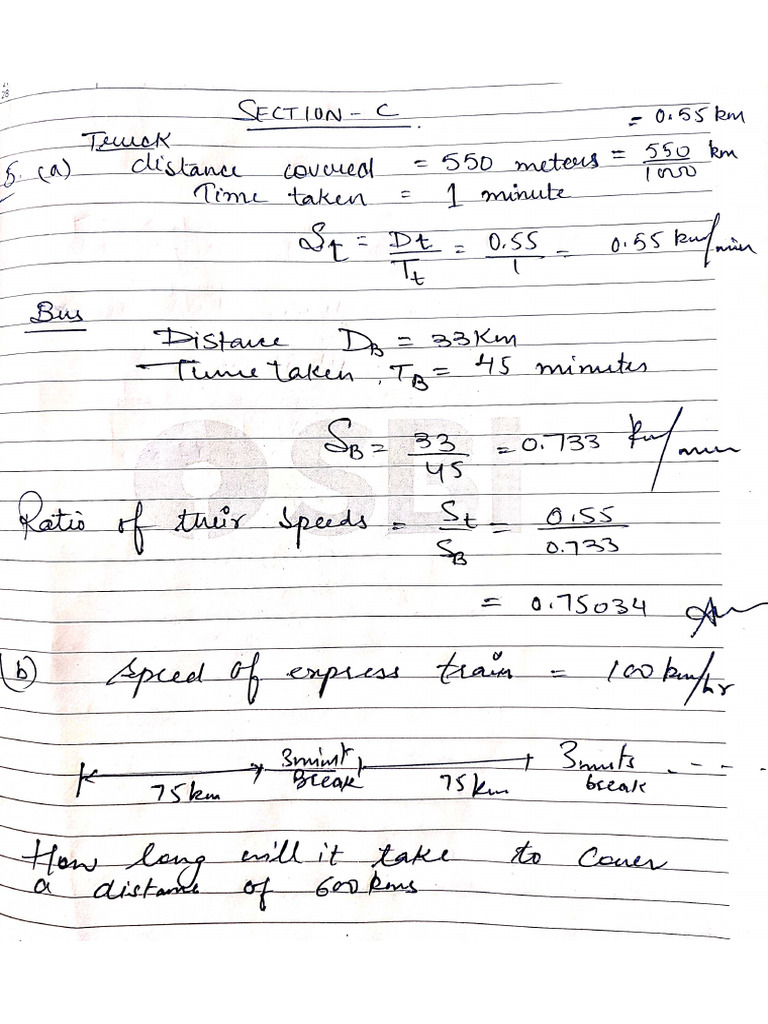 SECTION - C
= 0.55 km
Truck
5. (a) distance covered = 550 meters = 550/1000 km
Time taken = 1 minute
St = Dt/Tt = 0.55/1 = 0.55 km/min
Bus
Distance DB = 33 Km
Time taken, TB = 45 minutes
SB = 33/45 = 0.733 km/min
SBI
Ratio of their speeds = St/SB = 0.55/0.733
= 0.75034 Ans
(b) Speed of express train = 100 km/hr
75 km 3 mint Break 75 km 3 mints break - - - -
How long will it take to cover
a distance of 600 kms